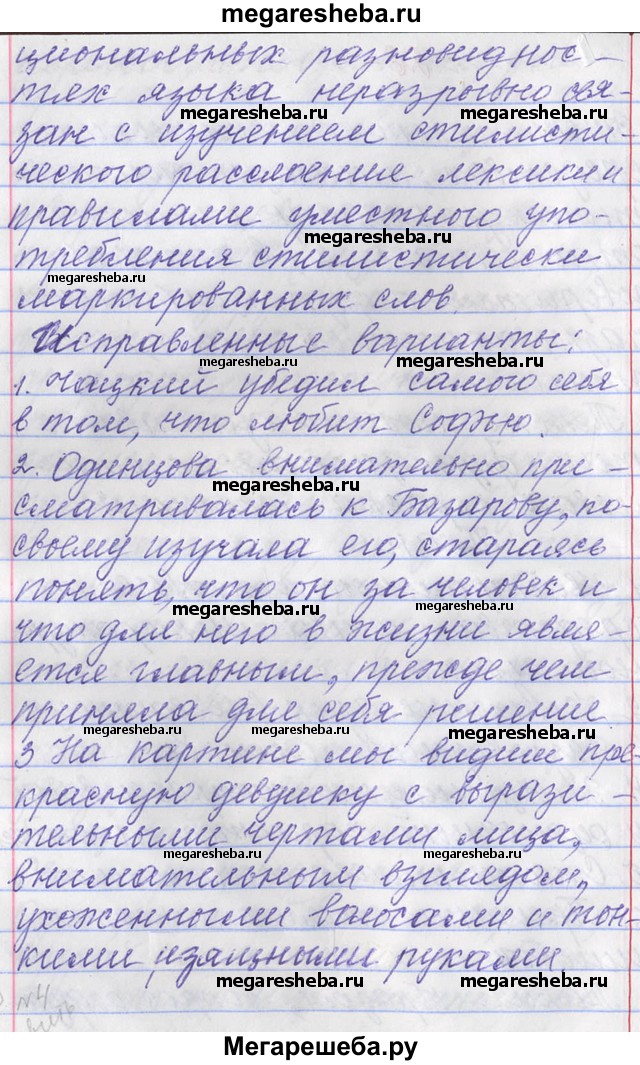 megaresheba.ru
циональных разновиднос-
тях языка неразрывно свя-
megaresheba.ru megaresheba.ru
зан с изучением стилисти-
ческого расслоение лексики и
правилами уместного упо-
megaresheba.ru
требления стилистически
megaresheba.ru
маркированных слов.
Исправленные варианты:
megaresheba.ru megaresheba.ru
1. Чацкий убедил самого себя
в том, что любит Софью.
2. Одинцова внимательно при-
megaresheba.ru
сматривалась к Базарову, по-
своему изучала его, стараясь
понять, что он за человек и
megaresheba.ru megaresheba.ru
что для него в жизни явля-
ется главным, прежде чем
приняла для себя решение
megaresheba.ru megaresheba.ru
3 На картине мы видим пре-
красную девушку с вырази-
тельными чертами лица,
megaresheba.ru megaresheba.ru
внимательным взглядом,
ухоженными волосами и тон-
кими, изящными руками
megaresheba.ru megaresheba.ru
№4
Мегарешеба.ру